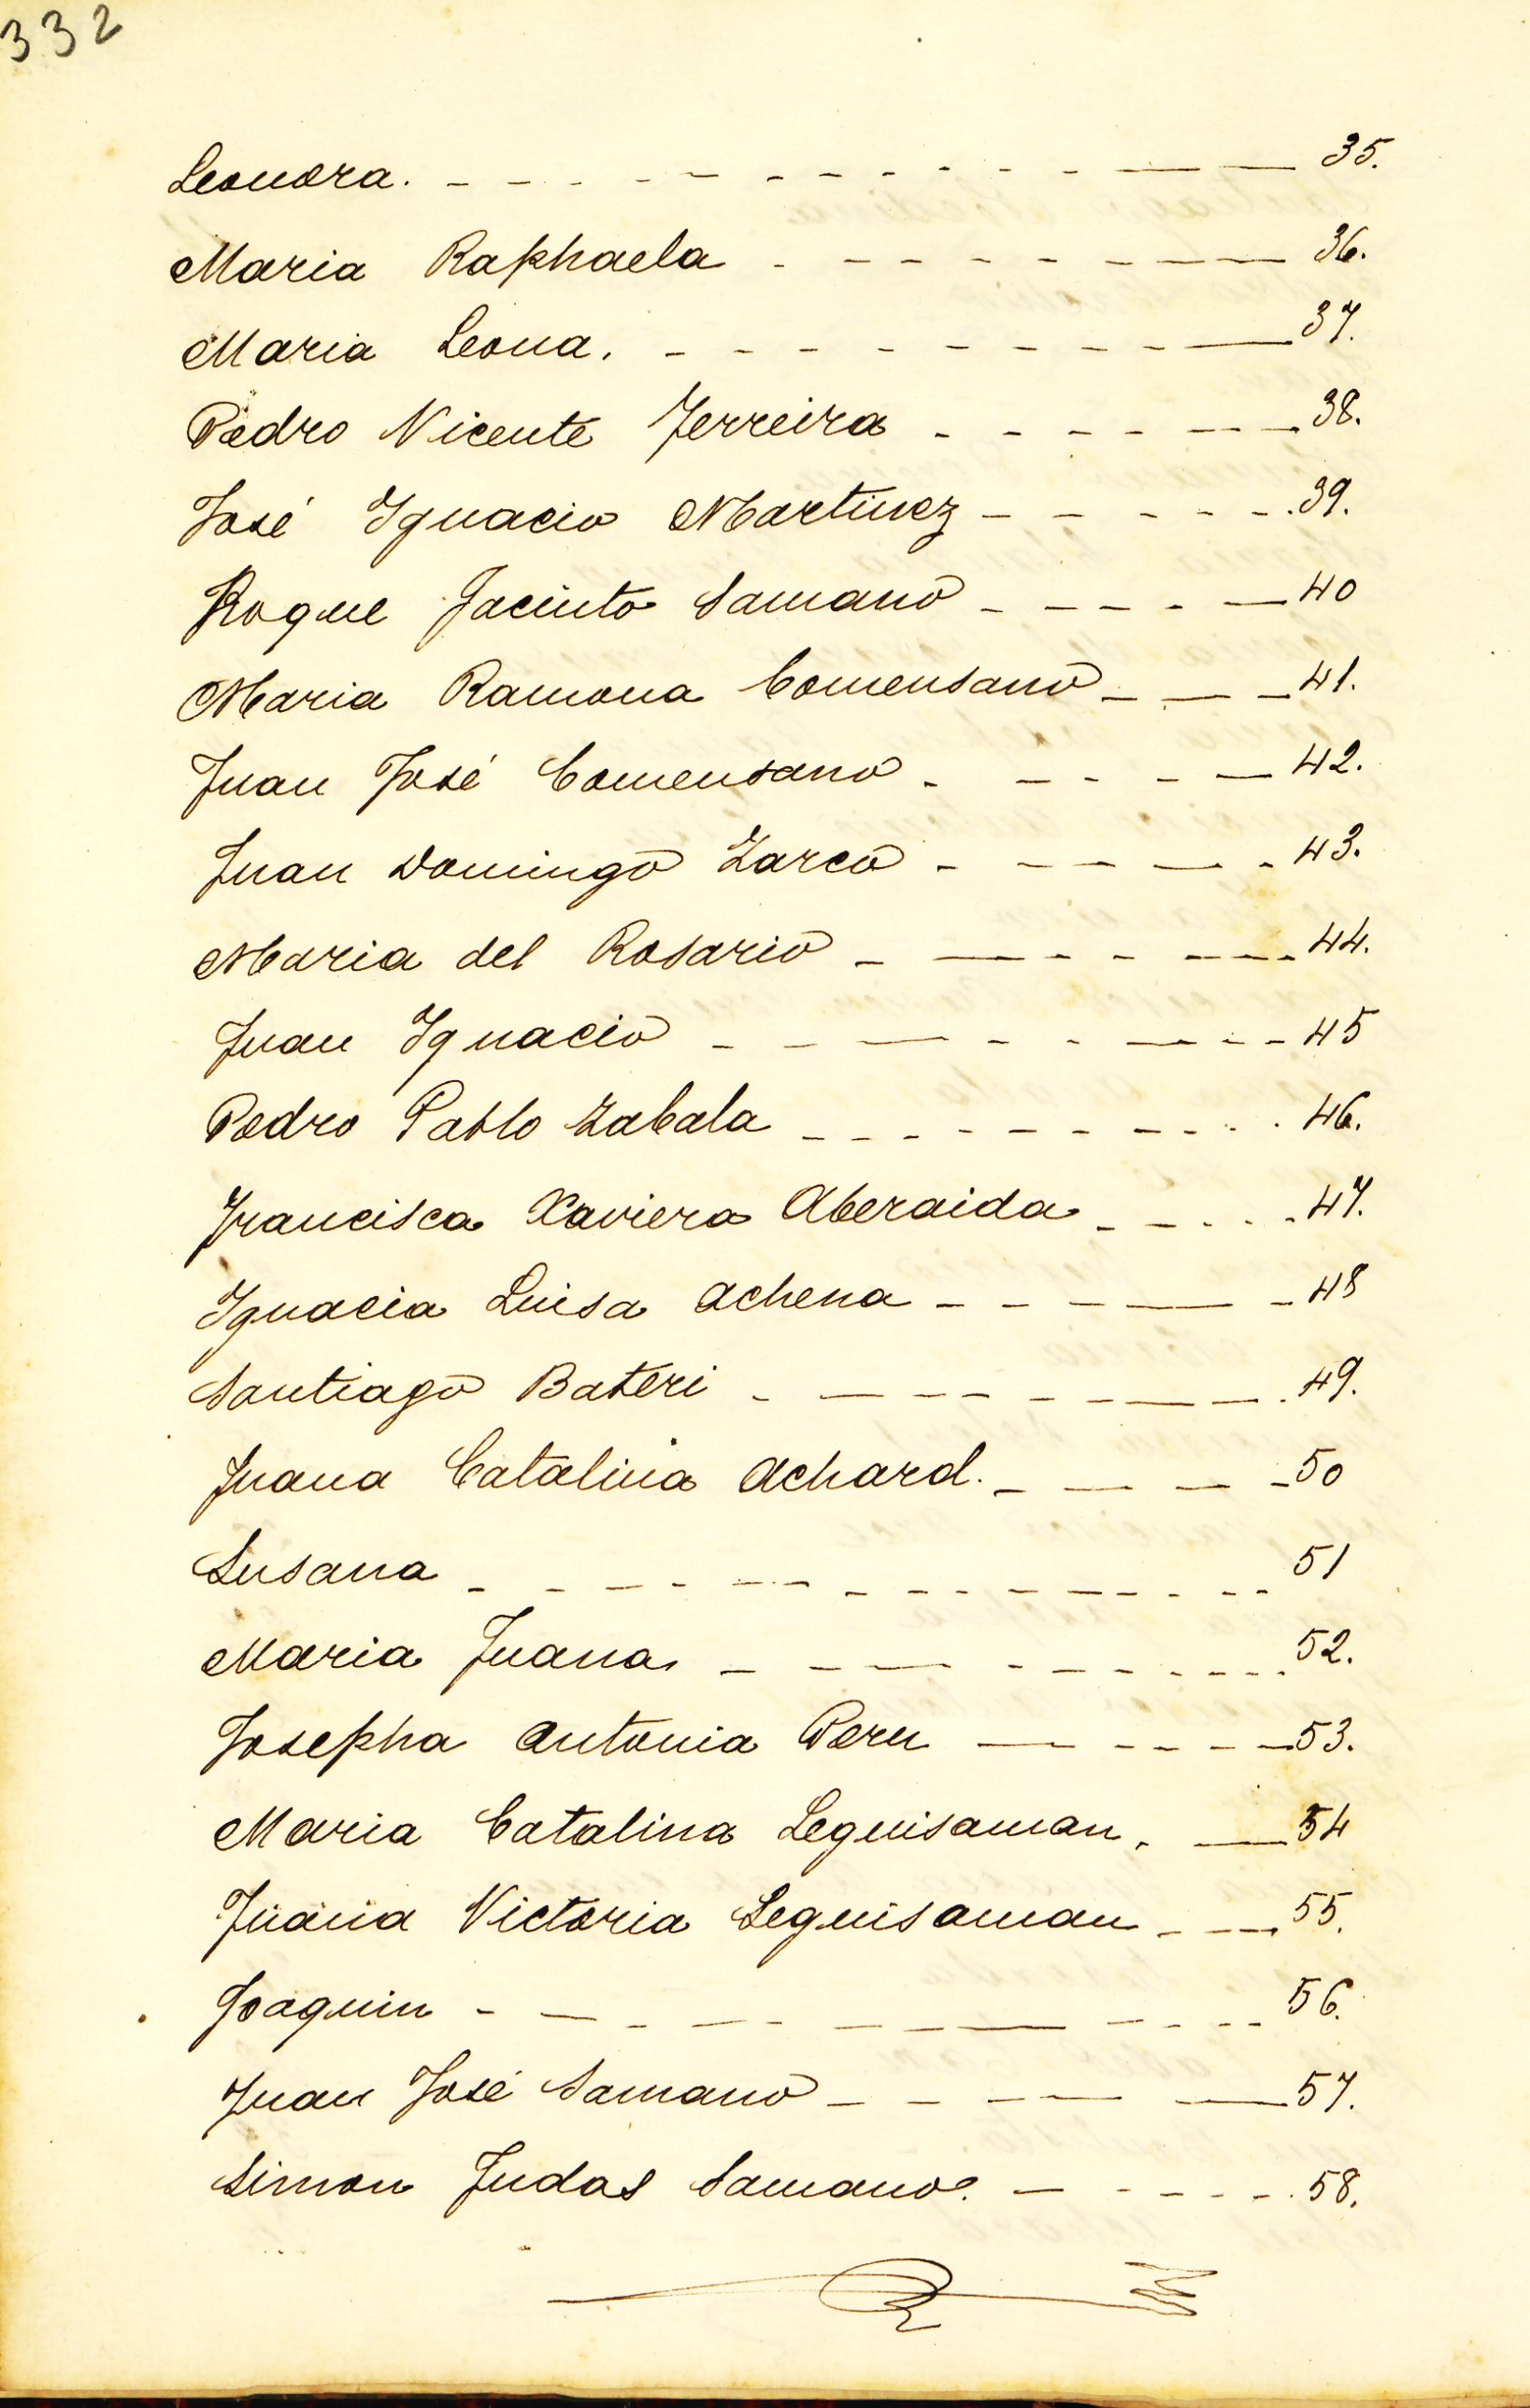 332
Leonora. - - - - - - - - - - - - 35.
Maria Raphaela - - - - - - - - 36.
Maria Leona. - - - - - - - - - 37.
Pedro Vicente Ferreira - - - - - - 38.
José Ignacio Martinez - - - - - - 39.
Roque Jacinto Samano - - - - - 40
Maria Ramona Comensano - - - 41.
Juan José Comensano - - - - - 42.
Juan Domingo Zarco - - - - - 43.
Maria del Rosario - - - - - - - 44.
Juan Ignacio - - - - - - - - - 45
Pedro Pablo Zabala - - - - - - - - - - 46.
Francisca Xaviera Aberaida - - - - - 47.
Ignacia Luisa Achena - - - - - 48
Santiago Bateri - - - - - - - - 49.
Juana Catalina Achard. - - - - 50
Susana - - - - - - - - - - - - - 51
Maria Juana - - - - - - - - - - 52.
Josepha Antonia Peru - - - - - 53.
Maria Catalina Leguisaman. - 54
Juana Victoria Leguisaman - - - 55.
Joaquin - - - - - - - - - - - - 56.
Juan José Samano - - - - - 57.
Simon Judas Samano. - - - - - - 58.